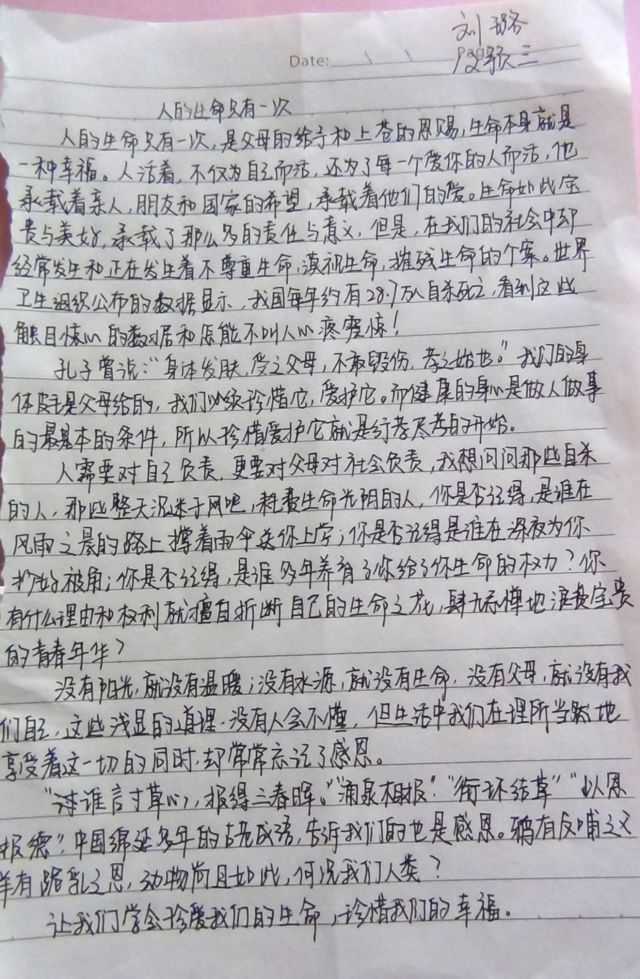 刘璐
Date:
段颖三
人的生命只有一次
人的生命只有一次，是父母的给予和上苍的恩赐，生命本身就是
一种幸福。人活着，不仅为自己而活，还为了每一个爱你的人而活，他
承载着亲人，朋友和国家的希望，承载着他们的爱。生命如此宝
贵与美好，承载了那么多的责任与意义，但是，在我们的社会中却
经常发生和正在发生着不尊重生命，漠视生命，摧残生命的个案。世界
卫生组织公布的数据显示，我国每年约有28.7万人自杀死亡，看到这些
触目惊心的数据和怎能不叫人心疼震惊！
孔子曾说："身体发肤，受之父母，不敢毁伤，孝之始也。"我们的身
体既是父母给的，我们必须珍惜它，爱护它。而健康的身心是做人做事
的最基本的条件，所以珍惜爱护它就是行孝尽孝的开始。
人需要对自己负责，更要对父母对社会负责，我想问问那些自杀
的人，那些整天沉迷于网吧，耗费生命光阴的人，你是否记得，是谁在
风雨之晨的路上撑着雨伞送你上学；你是否记得是谁在深夜为你
抄好被角；你是否记得，是谁多年养育了你给了你生命的权力？你
有什么理由和权利就擅自折断自己的生命之花，肆无忌惮地浪费宝贵
的青春年华？
没有阳光，就没有温暖；没有水源，就没有生命，没有父母，就没有我
们自己，这些浅显的道理，没有人会不懂，但生活中我们在理所当然地
享受着这一切的同时，却常常忘记了感恩。
"谁言寸草心，报得三春晖。""涌泉相报""衔环结草""以恩
报德"，中国绵延多年的古老成语，告诉我们的也是感恩。鸦有反哺之义
羊有跪乳之恩，动物尚且如此，何况我们人类？
让我们学会珍爱我们的生命，珍惜我们的幸福。